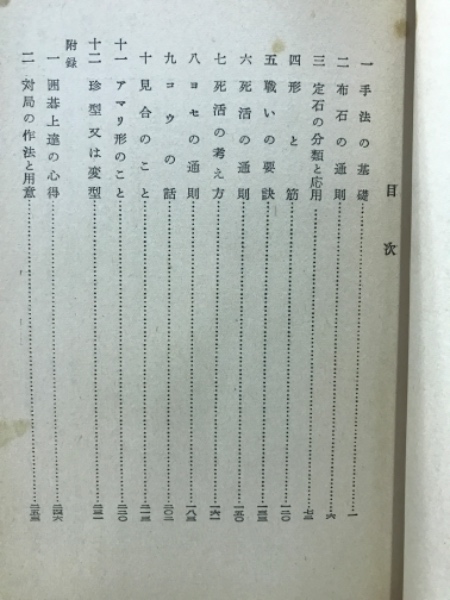 目次
一 手法の基礎 一
二 布石の通則 六
三 定石の分類と応用 七三
四 形と筋 一二〇
五 戦いの要訣 一三三
六 死活の通則 一五〇
七 死活の考え方 一六一
八 ヨセの通則 一八三
九 コウの話 二〇二
十 見合のこと 二一三
十一 アマリ形のこと 二二〇
十二 珍型又は変型 二三一
附録
一 囲碁上達の心得 二四六
二 対局の作法と用意 二五三